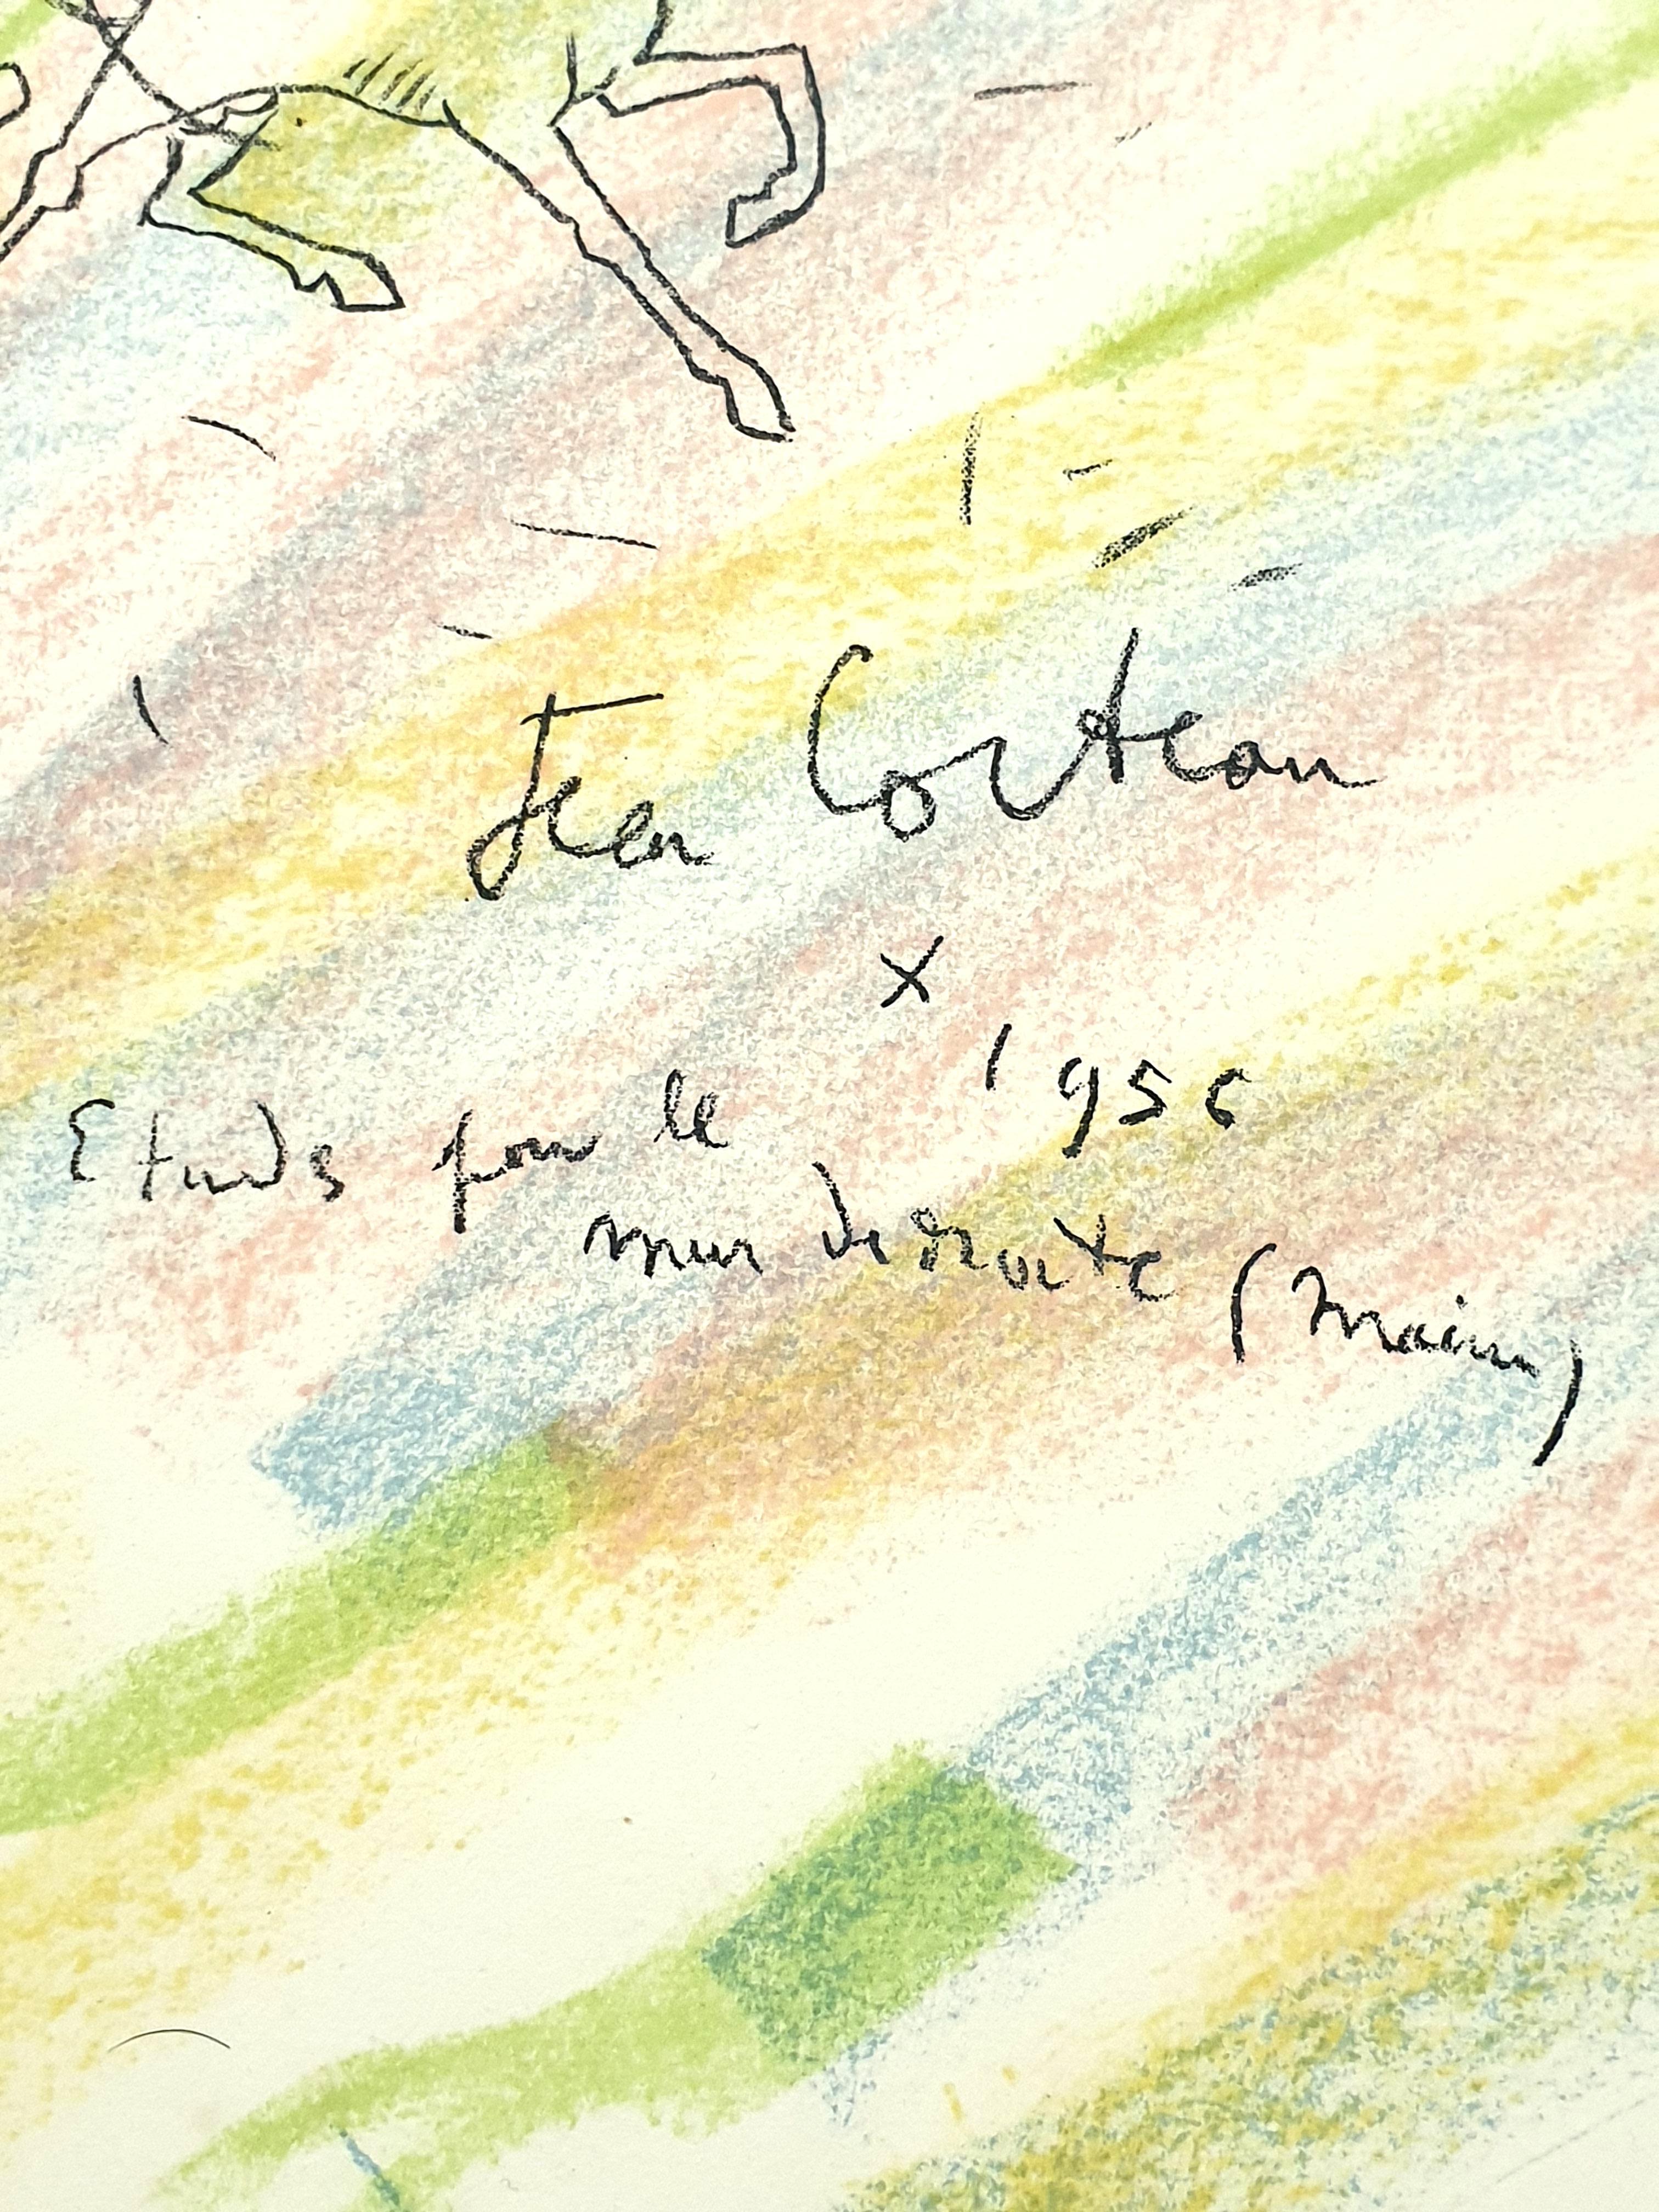 Jean Cocteau
x
1956
Etude pour le
mur de droite (Mairie)